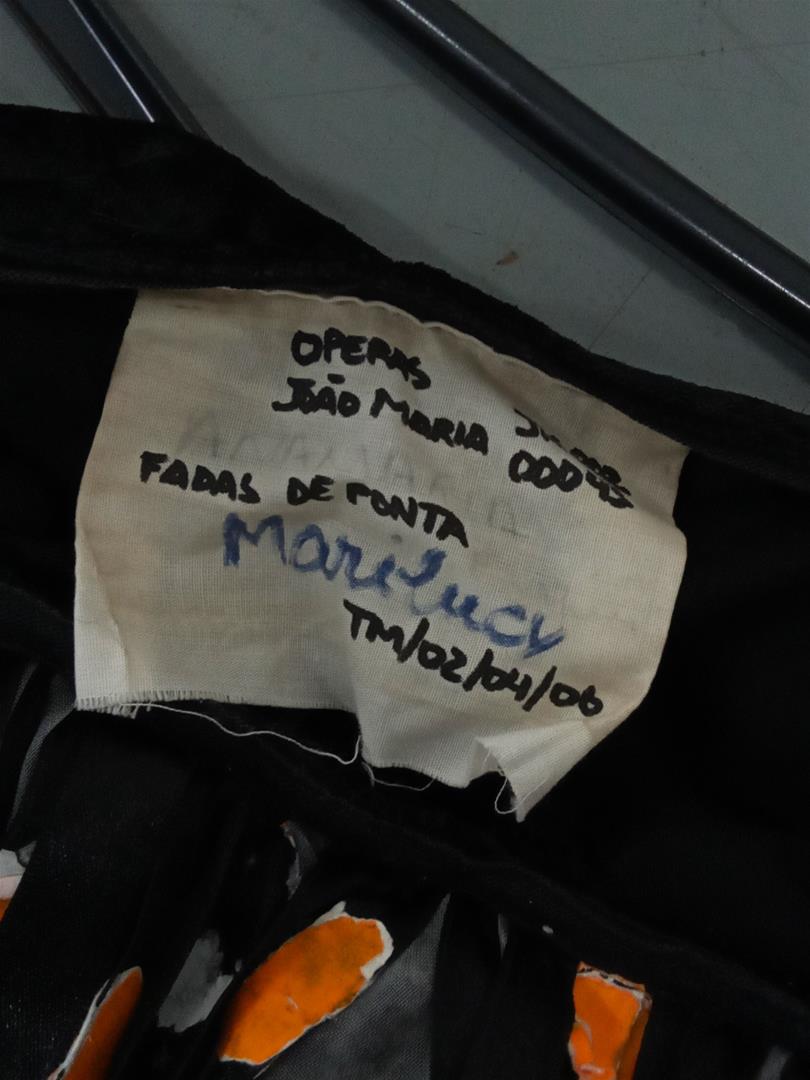 OPERAS
JOÃO MARIA 00045
FADAS DE PONTA
Marilucy
TM/02/04/06